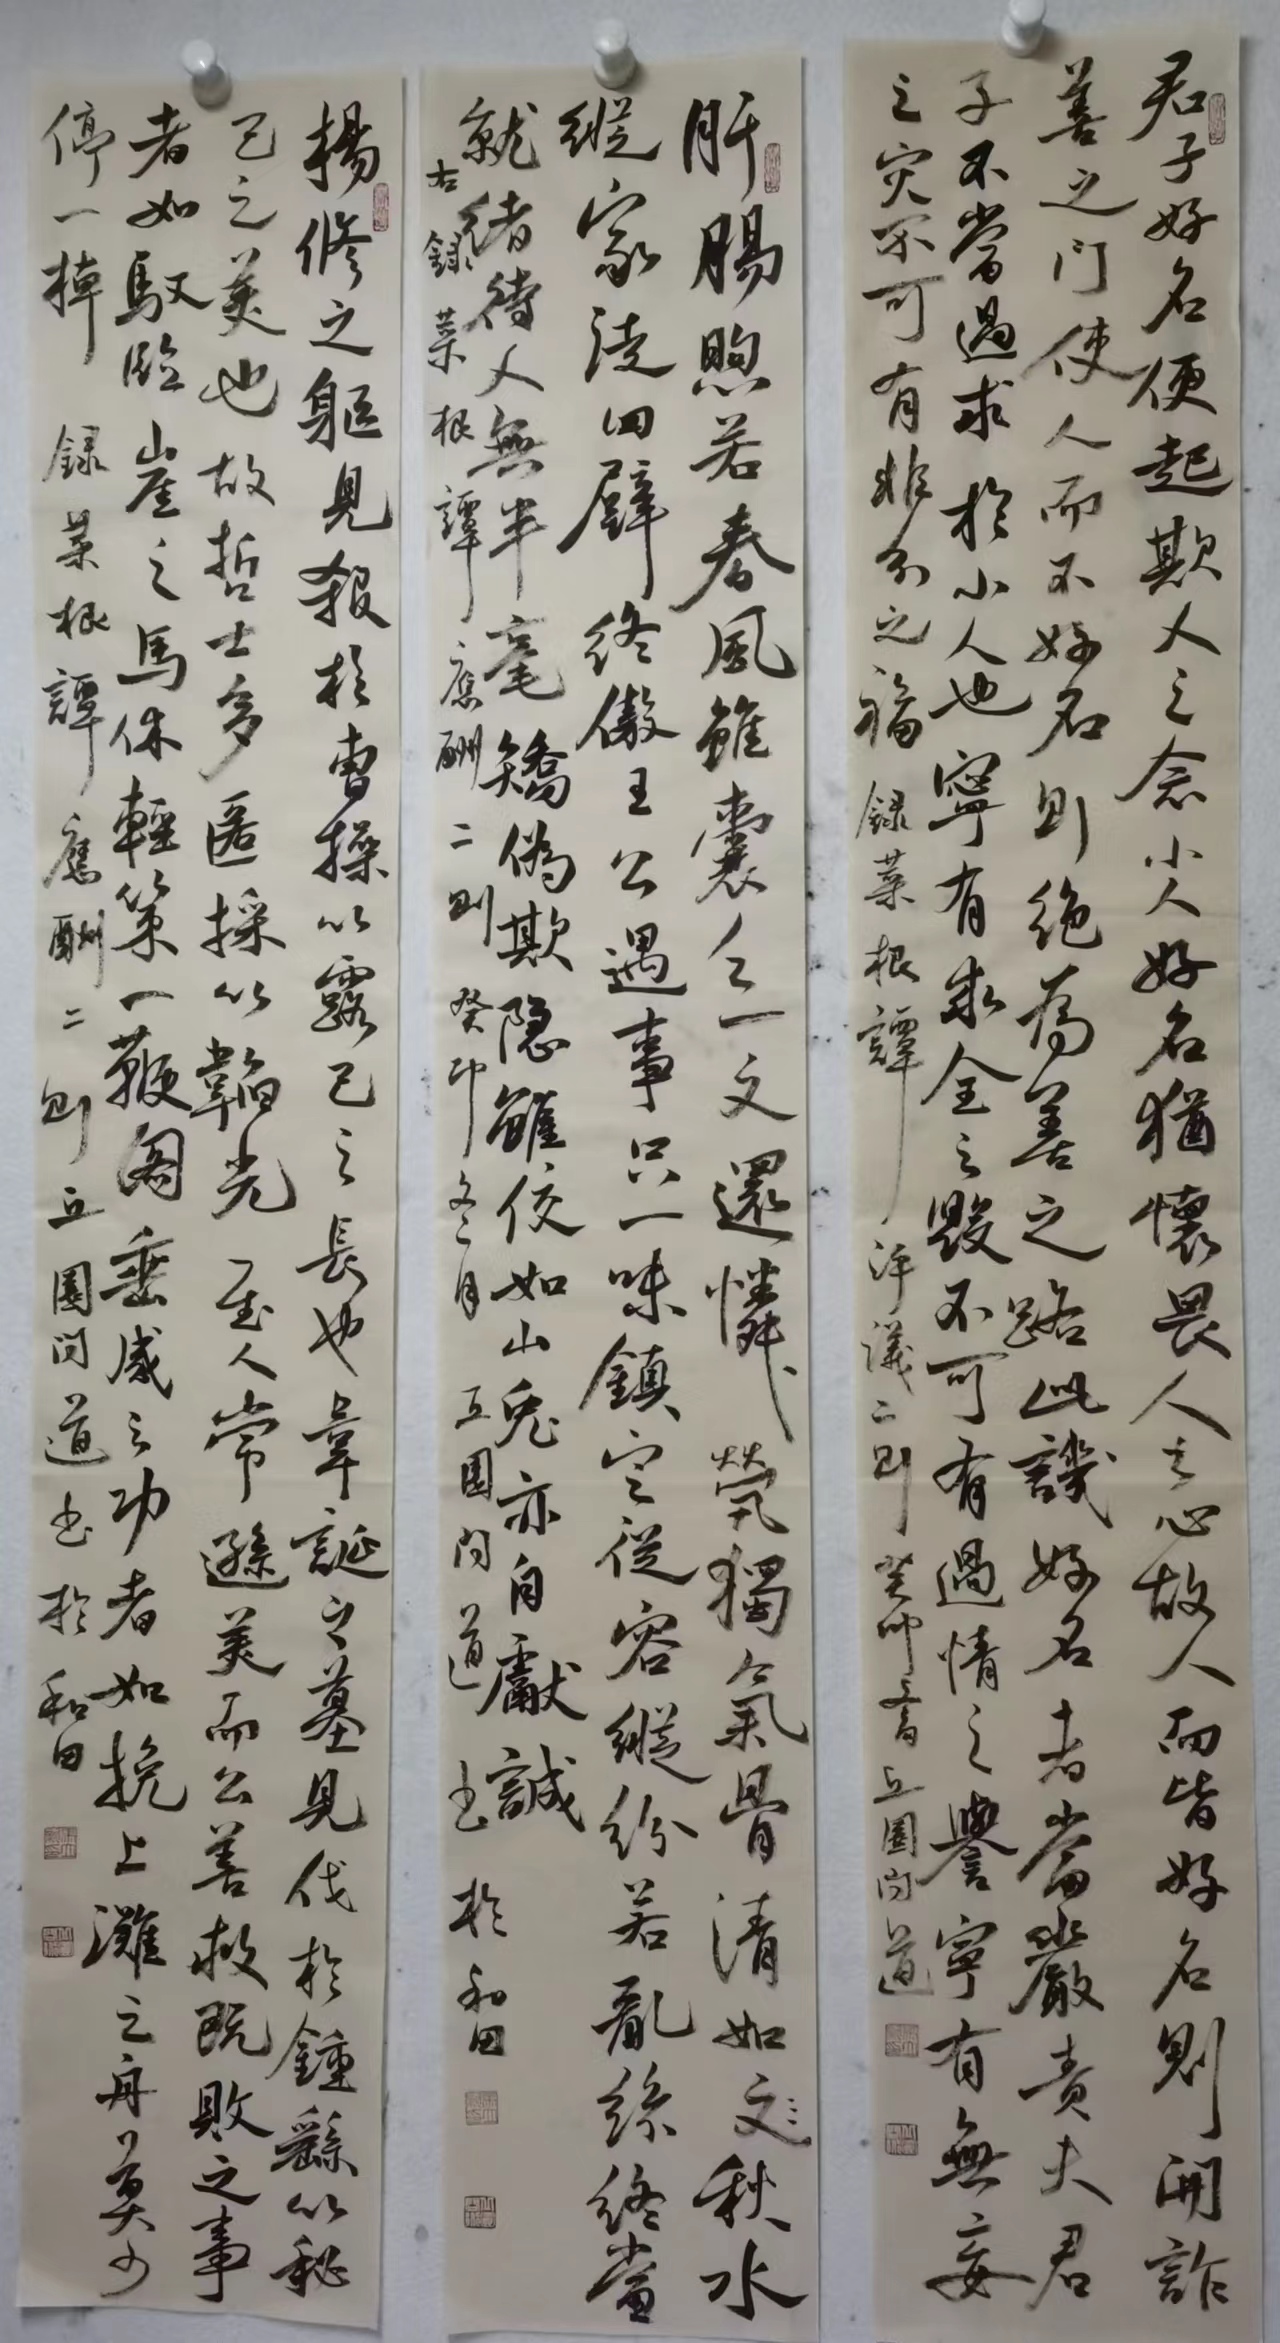 君子好名便起欺人之念小人好名猶懷畏人之心故人而皆好名則開詐
善之门使人而不好名則绝為善之路此譏好名者當嚴责夫君
子不當過求於小人也寧有求全之毁不可有過情之譽寧有無妄
之灾不可有非分之福
録菜根譚 评議二則 癸卯 丘園问道
肝腸煦若春風雖囊乏一文還憐茕獨氣骨清如秋水
縱家徒四壁终傲王公遇事只一味鎮定從容縱纷若亂絲终當
就绪待人無半毫矯偽欺隐雖狡如山鬼亦自獻誠
右録菜根譚應酬二則 癸卯冬月 丘園问道 书於和田
楊修之軀見殺於曹操以露己之長也韋誕之墓見伐於鍾繇以秘
己之美也故哲士多匿採以韜光至人常遜美而公善救既敗之事
者如馭臨崖之馬休輕策一鞭图垂成之功者如挽上灘之舟莫少
停一棹
録菜根譚應酬二則 丘園问道书於和田